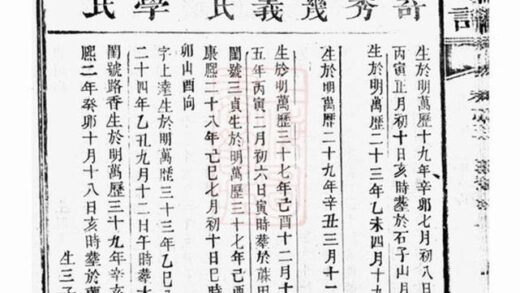 奇秀幾義氏學氏
生於明萬歷十九年辛卯七月初八日
丙寅正月初十日亥時葬於石子山月
生於明萬歷二十三年乙未四月十九
生於明萬歷二十九年辛丑三月十
生於明萬歷三十七年己酉十二月十
五年丙寅二月初六日寅時葬於莊田
閨號三貞生於明萬歷三十七年己酉
康熙二十八年己巳七月初十日巳時
卯山酉向
字上達生於明萬歷三十三年乙巳八
二十四年乙丑九月十二日午時葬大
閨號路香生於明萬歷三十九年辛亥
熙二年癸卯十月十八日亥時葬於
生三子